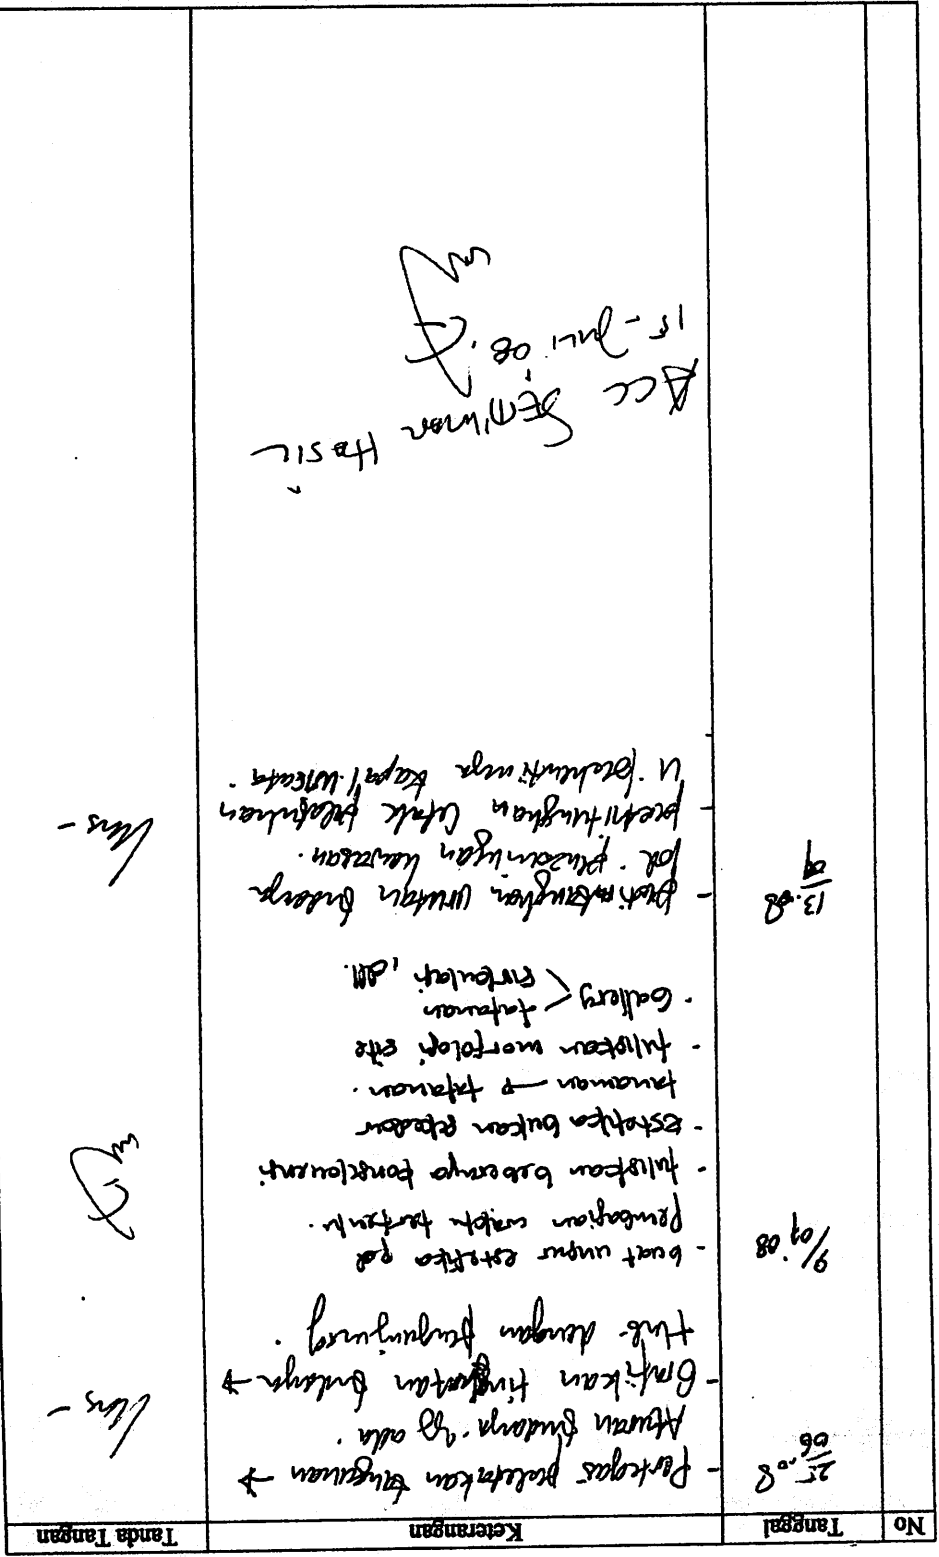 No Tanggal Keterangan Tanda Tangan
25/06 '08 - Pertegas peletakan bangunan →
Aturan budaya yg ada.
- Grafikan tingkatan budaya →
Hub. dengan pengunjung.
9/07 '08 - buat unsur estetika pd
pembagian waktu tertentu.
- tuliskan beberapa
- Estetika bukan
tanaman → tatanan.
- tuliskan morfologi site
- Gallery < tatanan
sirkulasi, dll.
13/09 '08 - urutan budaya
pd. kawasan.
- letak pelabuhan
U/ kapal wisata.
ACC SEMINAR HASIL
15 - Juli '08.